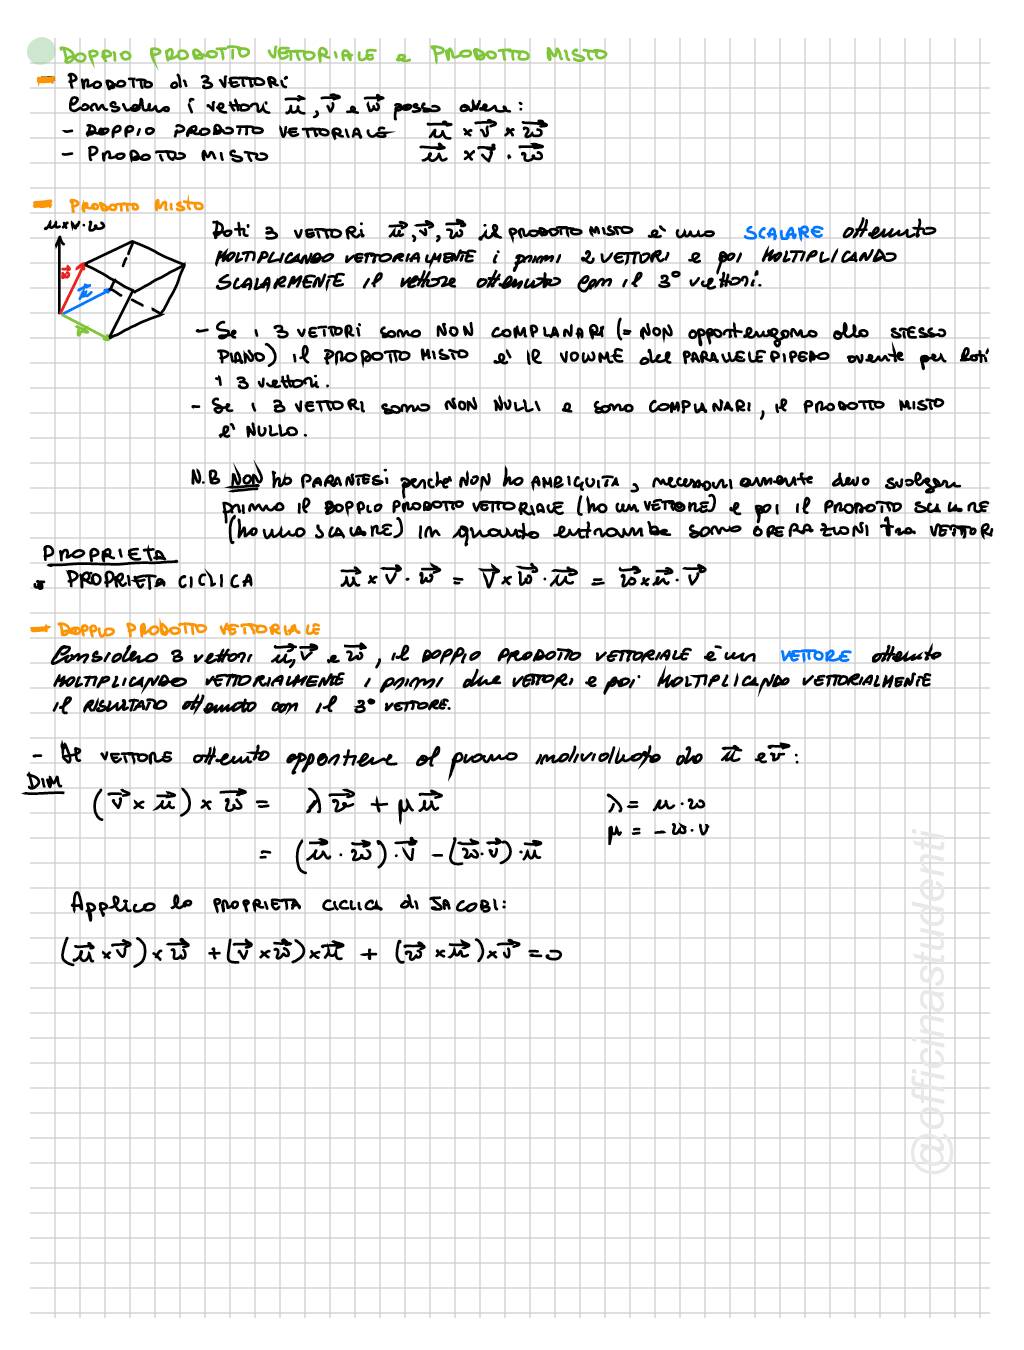 DOPPIO PRODOTTO VETTORIALE e PRODOTTO MISTO
PRODOTTO di 3 VETTORI
Considero i vettori u, v e w posso avere:
- DOPPIO PRODOTTO VETTORIALE u × v × w
- PRODOTTO MISTO u × v · w
PRODOTTO MISTO
u×v·w
w
u
v
Dati 3 VETTORI u, v, w il PRODOTTO MISTO è uno SCALARE ottenuto
MOLTIPLICANDO VETTORIALMENTE i primi 2 VETTORI e poi MOLTIPLICANDO
SCALARMENTE il vettore ottenuto con il 3° vettori.
- Se i 3 VETTORI sono NON COMPLANARI (= NON appartengono allo STESSO
PIANO) il PRODOTTO MISTO è IL VOLUME del PARALLELEPIPEDO avente per lati
i 3 vettori.
- Se i 3 VETTORI sono NON NULLI e sono COMPLANARI, il PRODOTTO MISTO
è NULLO.
N.B NON ho PARANTESI perchè NON ho AMBIGUITA, necessariamente devo svolgere
primo il DOPPIO PRODOTTO VETTORIALE (ho un VETTORE) e poi il PRODOTTO SCALARE
(ho uno SCALARE) in quanto entrambe sono OPERAZIONI tra VETTORI
PROPRIETA
PROPRIETA CICLICA u × v · w = v × w · u = w × u · v
DOPPIO PRODOTTO VETTORIALE
Considero 3 vettori u, v e w, il DOPPIO PRODOTTO VETTORIALE è un VETTORE ottenuto
MOLTIPLICANDO VETTORIALMENTE i primi due VETTORI e poi MOLTIPLICANDO VETTORIALMENTE
il RISULTATO ottenuto con il 3° VETTORE.
- Il VETTORE ottenuto appartiene al piano individuato da u e v:
DIM
(v × u) × w = λv + μu λ = u·w
μ = -w·v
= (u · w) · v - (w · v) · u
Applico la PROPRIETA CICLICA di JACOBI:
(u × v) × w + (v × w) × u + (w × u) × v = 0
@officinastudenti